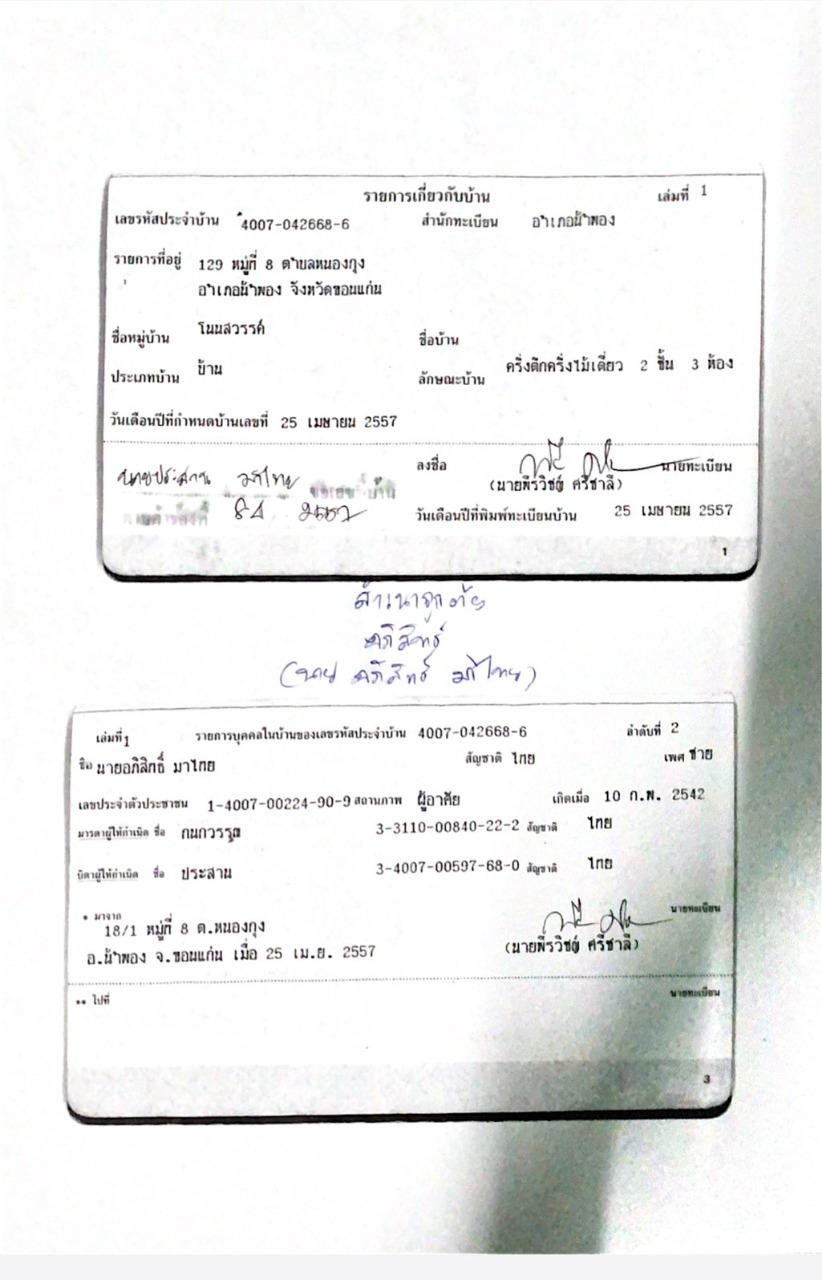 รายการเกี่ยวกับบ้าน เล่มที่ 1
เลขรหัสประจำบ้าน 4007-042668-6 สำนักทะเบียน อำเภอน้ำพอง
รายการที่อยู่ 129 หมู่ที่ 8 ตำบลหนองกุง
อำเภอน้ำพอง จังหวัดขอนแก่น
ชื่อหมู่บ้าน โนนสวรรค์ ชื่อบ้าน
ประเภทบ้าน บ้าน ลักษณะบ้าน ครึ่งตึกครึ่งไม้เดี่ยว 2 ชั้น 3 ห้อง
วันเดือนปีที่กำหนดบ้านเลขที่ 25 เมษายน 2557
ลงชื่อ นายทะเบียน
นายประสาน มาไทย
(นายพีรวิชญ์ ศรีชาลี)
วันเดือนปีที่พิมพ์ทะเบียนบ้าน 25 เมษายน 2557
1
สำเนาถูกต้อง
อภิสิทธิ์
(นาย อภิสิทธิ์ มาไทย)
เล่มที่ 1 รายการบุคคลในบ้านของเลขรหัสประจำบ้าน 4007-042668-6 ลำดับที่ 2
ชื่อ นายอภิสิทธิ์ มาไทย สัญชาติ ไทย เพศ ชาย
เลขประจำตัวประชาชน 1-4007-00224-90-9 สถานภาพ ผู้อาศัย เกิดเมื่อ 10 ก.พ. 2542
มารดาผู้ให้กำเนิด ชื่อ กนกวรรณ 3-3110-00840-22-2 สัญชาติ ไทย
บิดาผู้ให้กำเนิด ชื่อ ประสาน 3-4007-00597-68-0 สัญชาติ ไทย
* มาจาก นายทะเบียน
18/1 หมู่ที่ 8 ต.หนองกุง
อ.น้ำพอง จ.ขอนแก่น เมื่อ 25 เม.ย. 2557 (นายพีรวิชญ์ ศรีชาลี)
** ไปที่ นายทะเบียน
3